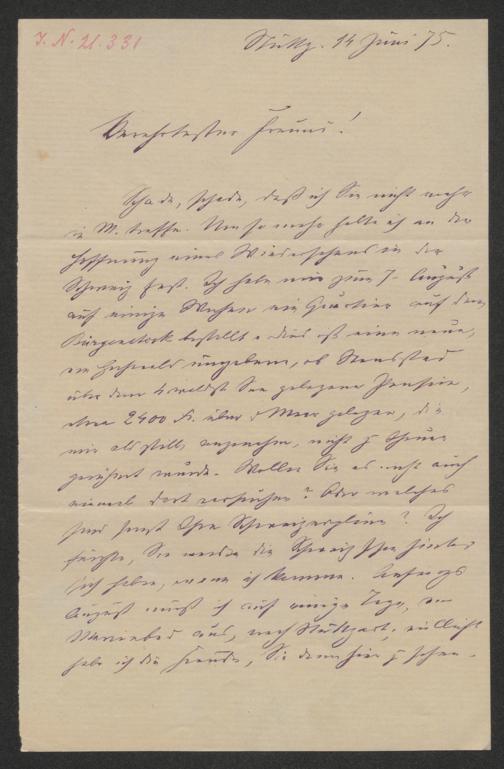 J. N. 21.331
Stuttg. 14 Juni 75.
Verehrtester Freund!
Schade, schade, daß ich Sie nicht mehr
in M. treffe. Um so mehr halte ich an der
Hoffnung eines Wiedersehens in der
Schweiz fest. Ich habe mir zum 7. August
auf einige Wochen ein Quartier auf dem
Bürgenstock bestellt – dies ist eine neue,
von umgeben, ob Stansstad
über dem 4 waldst. See gelegene Pension,
etwa 2400 Fß. über d Meer gelegen, die
mir als still, angenehm, nicht z theuer
gerühmt wurde. Wollen Sie es nicht auch
einmal dort versuchen? Oder welches
sind sonst Ihre Schweizerpläne? Ich
fürchte, Sie werden die Schweiz schon hinter
sich haben, wenn ich komme. Anfangs
August muß ich auf einige Tage, von
Marienbad aus, nach Stuttgart; vielleicht
habe ich die Freude, Sie dann hier z sehen.